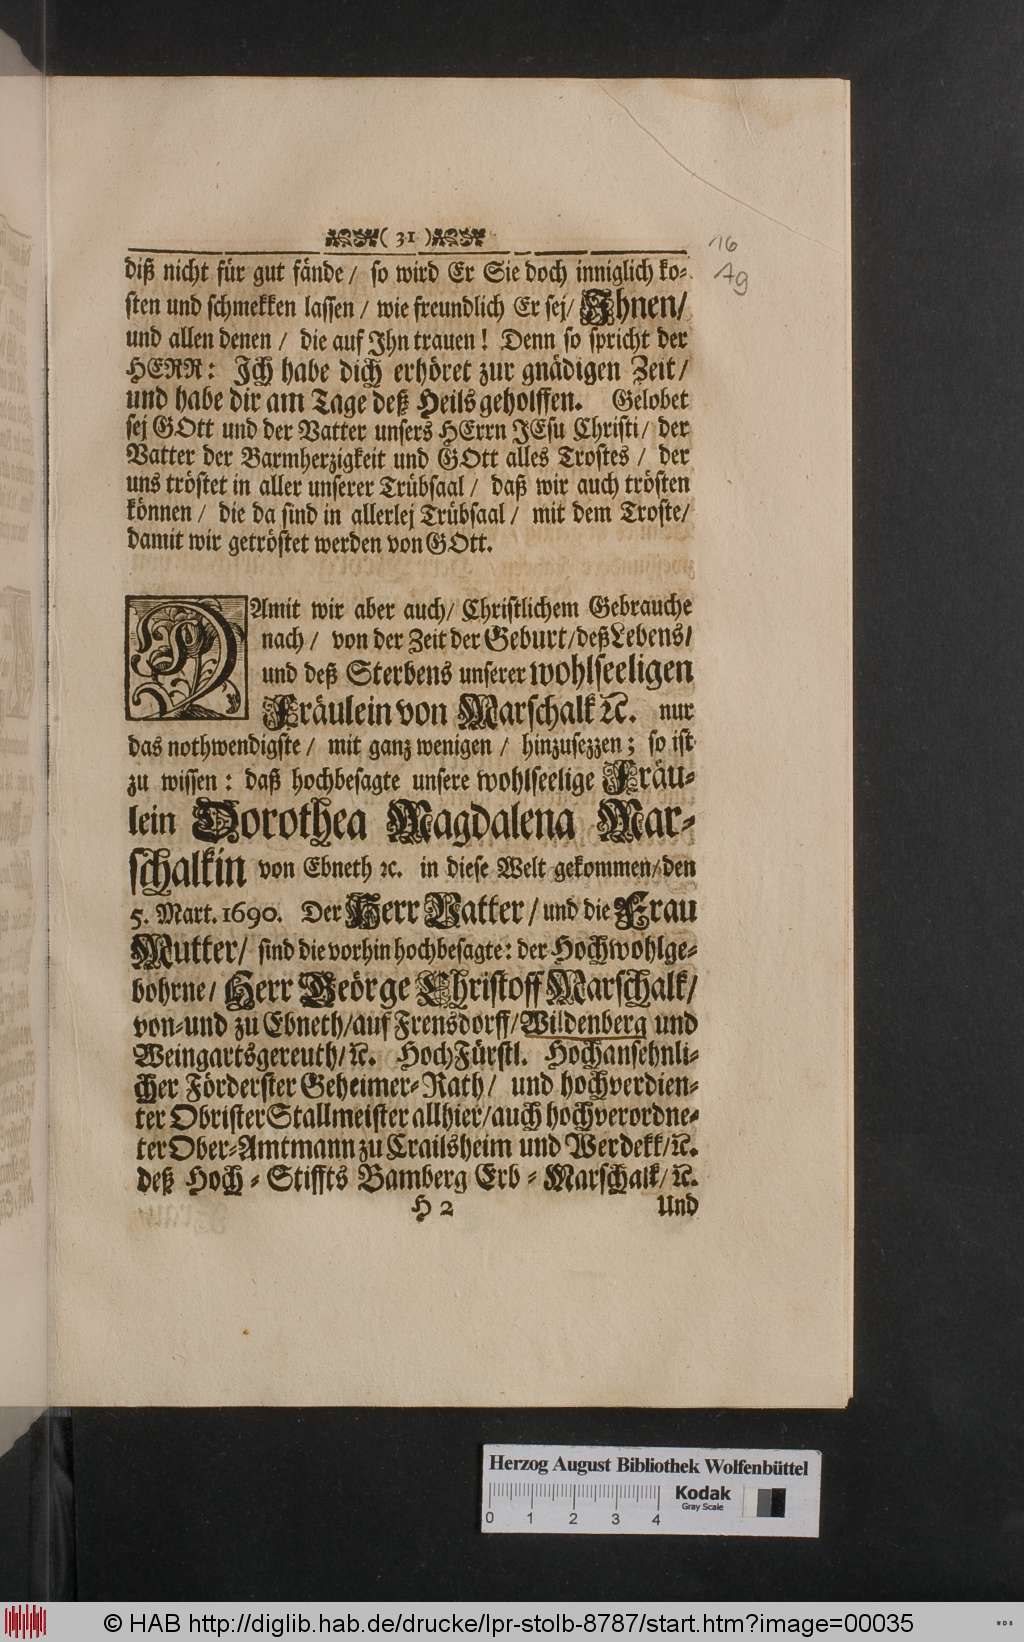 ( 31 )
16
19
diß nicht für gut fände / so wird Er Sie doch inniglich ko-
sten und schmekken lassen / wie freundlich Er sej / Ihnen /
und allen denen / die auf Ihn trauen ! Denn so spricht der
HERR : Ich habe dich erhöret zur gnädigen Zeit /
und habe dir am Tage deß Heils geholffen. Gelobet
sej GOtt und der Vatter unsers HErrn JEsu Christi / der
Vatter der Barmherzigkeit und GOtt alles Trostes / der
uns tröstet in aller unserer Trübsaal / daß wir auch trösten
können / die da sind in allerlej Trübsaal / mit dem Troste /
damit wir getröstet werden von GOtt.
DAmit wir aber auch / Christlichem Gebrauche
nach / von der Zeit der Geburt / deß Lebens /
und deß Sterbens unserer wohlseeligen
Fräulein von Marschalk ꝛc. nur
das nothwendigste / mit ganz wenigen / hinzusezzen ; so ist
zu wissen : daß hochbesagte unsere wohlseelige Fräu-
lein Dorothea Magdalena Mar-
schalkin von Ebneth ꝛc. in diese Welt gekommen / den
5. Mart. 1690. Der Herr Vatter / und die Frau
Mutter / sind die vorhin hochbesagte : der Hochwohlge-
bohrne / Herr Geörge Christoff Marschalk /
von- und zu Ebneth / auf Frensdorff / Wildenberg und
Weingartsgereuth / ꝛc. HochFürstl. Hochansehnli-
cher Förderster Geheimer-Rath / und hochverdien-
ter Obrister Stallmeister allhier / auch hochverordne-
ter Ober-Amtmann zu Crailsheim und Werdekk / ꝛc.
deß Hoch-Stiffts Bamberg Erb-Marschalk / ꝛc.
H 2 Und
Herzog August Bibliothek Wolfenbüttel
Kodak
Gray Scale
0 1 2 3 4
© HAB http://diglib.hab.de/drucke/lpr-stolb-8787/start.htm?image=00035